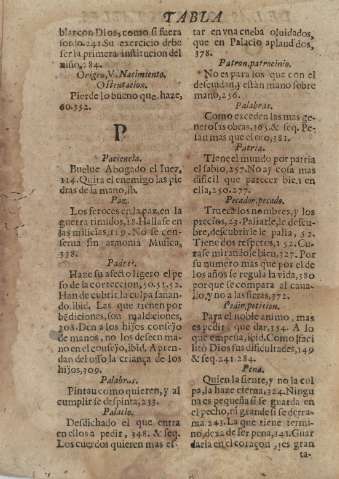 TABLA
blar con Dios, como si fuera
sordo. 241. Su exercicio debe
ser la primera institucion del
niño, 284.
Origen, V. Nacimiento.
Ostentacion.
Pierde lo bueno que haze,
60. 352.
P
Paciencia.
Buelue Abogado el Iuez,
114. Quita el enemigo las pie
dras de la mano, ib.
Paz.
Los feroces en la paz, en la
guerra timidos, 18. Hallase en
las milicias, 119. No se con-
serua sin armonia Musica,
338.
Padre.
Haze su afecto ligero el pe
so de la correccion, 50. 51. 52.
Han de cubrir la culpa sanan-
do. ibid. Las que tienen por
bēdiciones, son maldiciones,
308. Den a los hijos consejo
de manos, no los dexen ma-
no en el consejo, ibid. Apren
dan del osso la criança de los
hijos, 309.
Palabras.
Pintan como quieren, y al
cumplir se despinta, 233.
Palacio.
Desdichado el que entra
en ellos a pedir, 348. & seq.
Los cuerdos quieren mas es-
tar en vna cueba oluidados,
que en Palacio aplaudidos,
378.
Patron, patrocinio.
No es para los que con el
descuidan, y estàn mano sobre
mano, 256.
Palabras.
Como exceden las mas ge-
nerosas obras, 363. & seq. Pe-
san mas que el oro, 382.
Patria.
Tiene el mundo por patria
el sabio, 257. No ay cosa mas
dificil que parecer bien en
ella, 250. 277.
Pecador, pecado.
Trueca los nombres, y los
precios, 23. Paliarle, le descu-
bre, descubrirle le palia, 52.
Tiene dos respetos, 152. Cu-
rase mirandose bien, 327. Por
su numero mas que por el de
los años se regula la vida, 380
porque se compara al caua-
llo, y no a las fieras, 372.
Pedir, peticion.
Para el noble animo, mas
es pedir que dar, 154. A lo
que empeña, ibid. Como facilitò
Dios sus dificultades, 149
& seq. 241. 284.
Pena.
Quien la siente, y no la cul
pa, la haze eterna, 324. Ningu
na es pequeña si se guarda en
el pecho, ni grande si se derra-
ma. 243. La que tiene termi-
no, dexa de ser pena, 341. Guar
darla en el coraçon, es gran
ta-